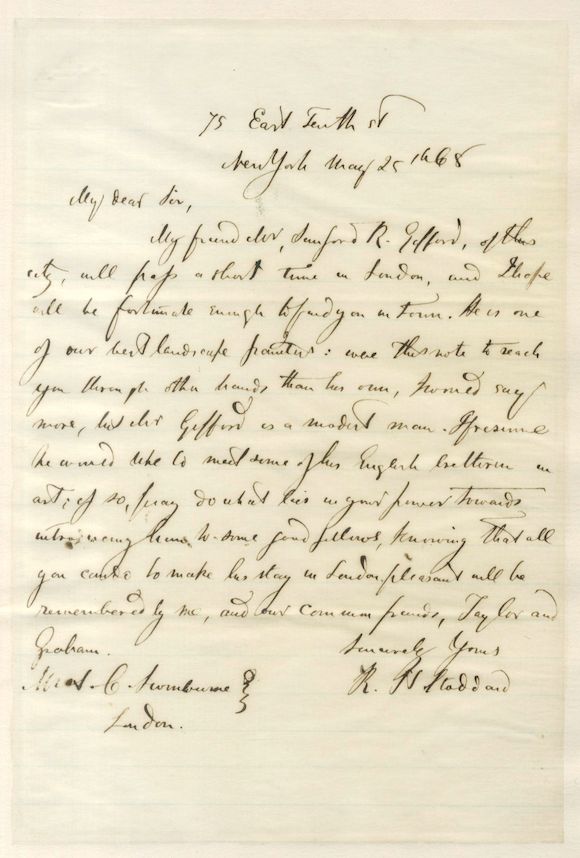 75 East Tenth st
New York May 25th 68
My dear Sir,
My friend Mr, Sanford R. Gifford, of this
city, will pass a short time in London, and I hope
will be fortunate enough to find you in town. He is one
of our best landscape painters: were this note to reach
you through other hands than his own, I would say
more, but Mr Gifford is a modest man. I presume
he would like to meet some of his English brethren in
art; if so, pray do what lies in your power towards
introducing him to some good fellows, knowing that all
you can do to make his stay in London pleasant will be
remembered by me, and our common friends, Taylor and
Graham.
Sincerely Yours
R. H Stoddard
C. Swinburne
London.